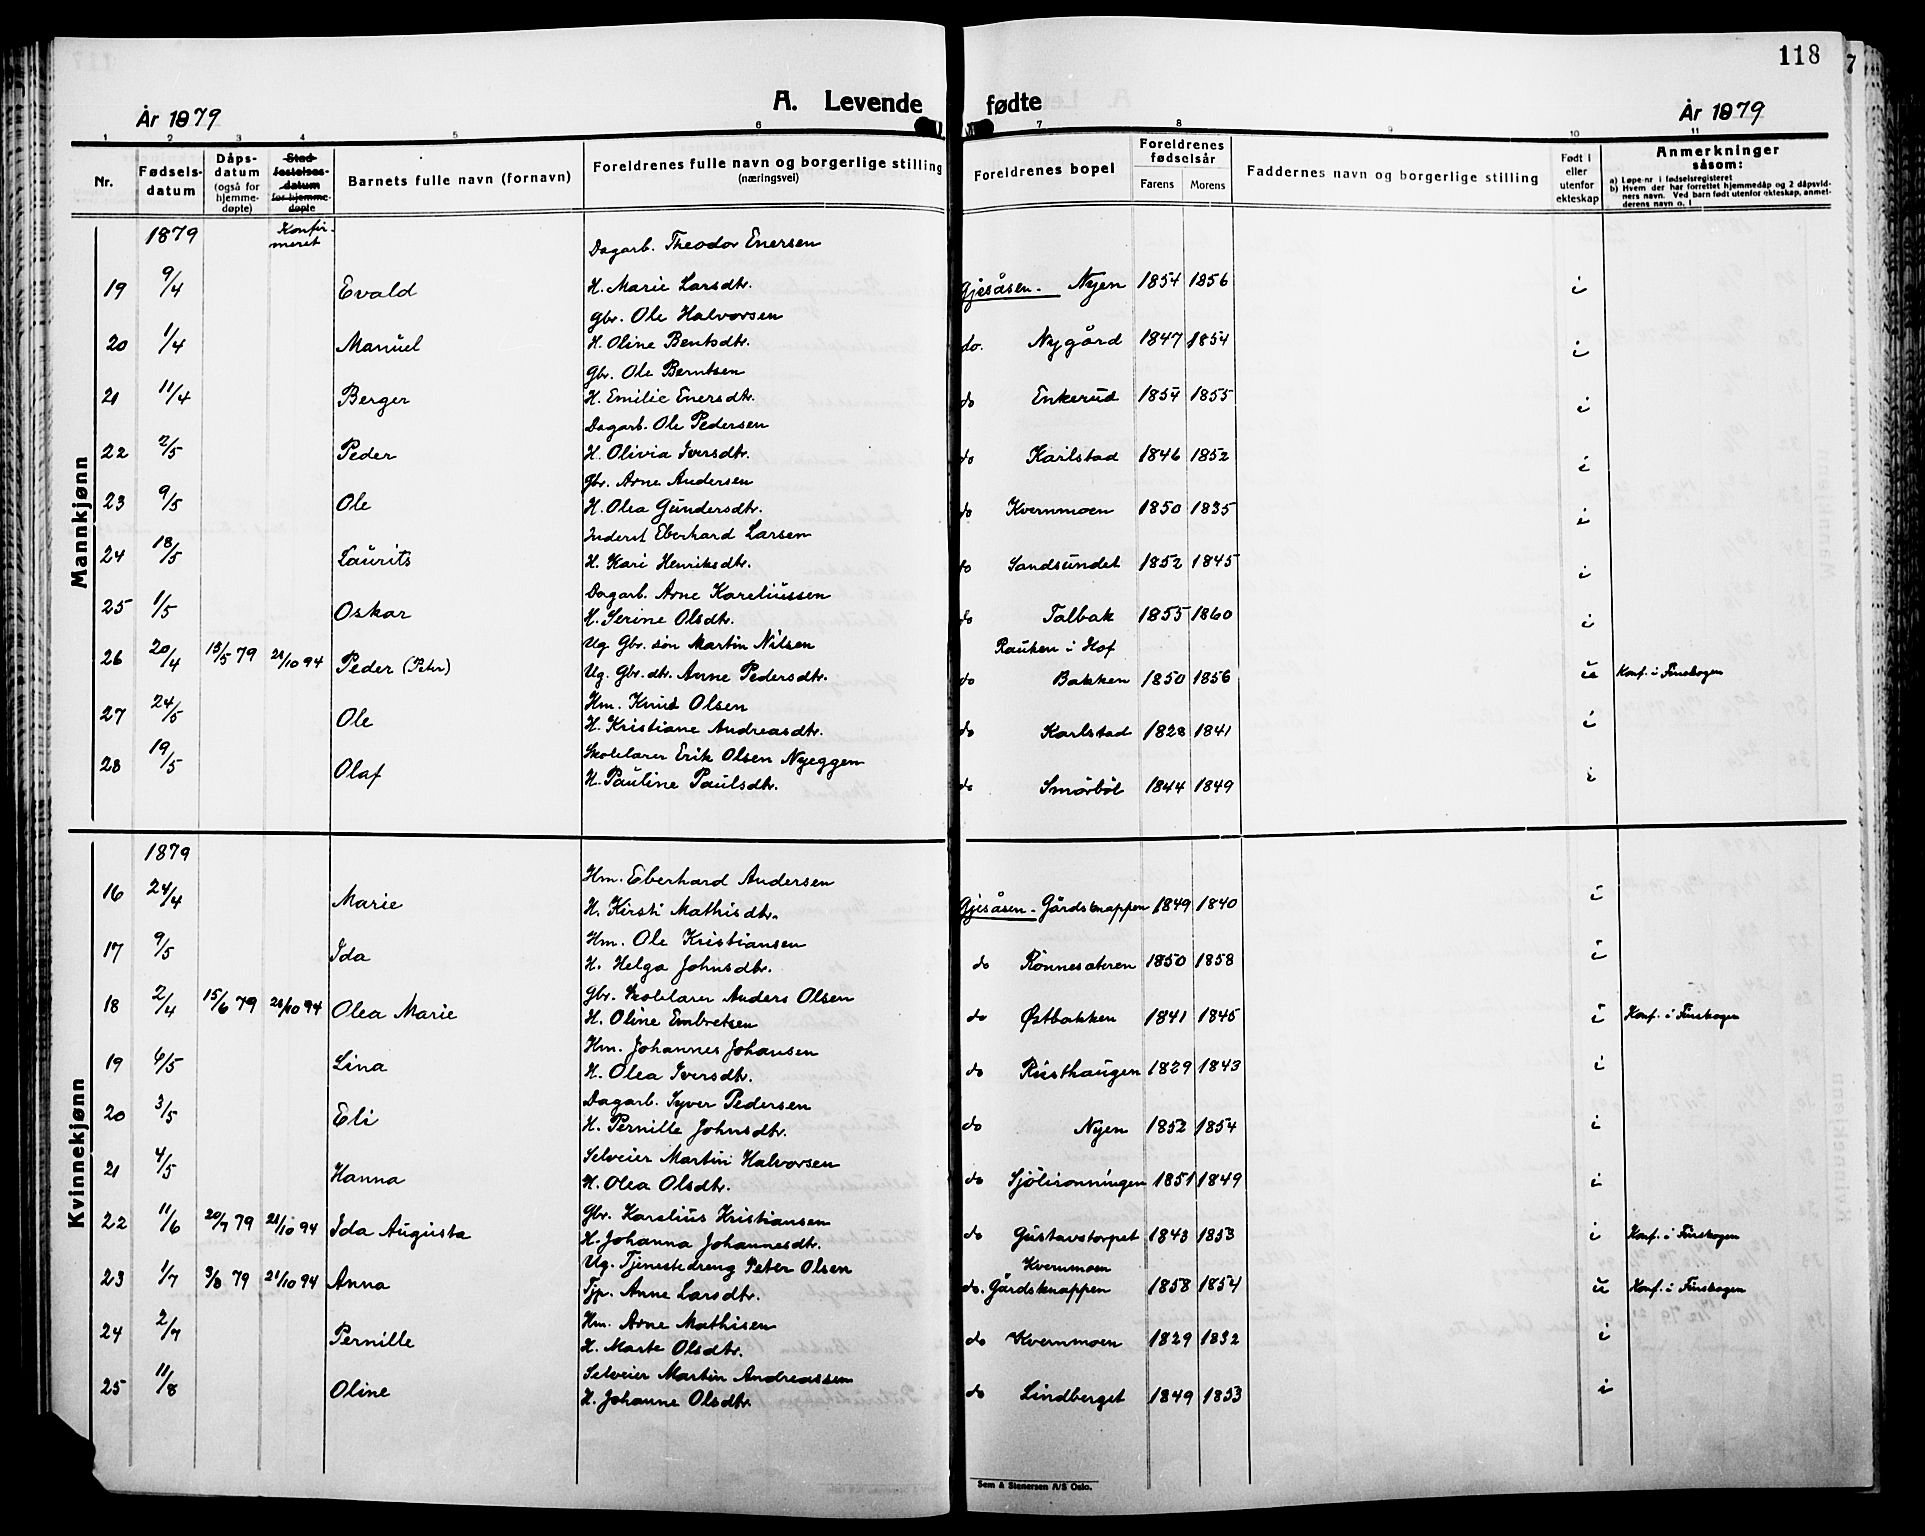 118
A. Levende fødte
År 1879
År 1879
1 2 3 4 5 6 7 8 9 10 11
Nr.
Fødsels-datum
Dåps-datum (også for hjemme-døpte)
Stad-festelses-datum for hjemme-døpte
Barnets fulle navn (fornavn)
Foreldrenes fulle navn og borgerlige stilling (næringsvei)
Foreldrenes bopel
Foreldrenes fødselsår
Farens Morens
Faddernes navn og borgerlige stilling
Født i eller utenfor ekteskap
Anmerkninger såsom:
a) Løpe-nr i fødselsregisteret
b) Hvem der har forrettet hjemmedåp og 2 dåpsvidners navn. Ved barn født utenfor ekteskap, anmelderens navn o. l
Mannkjønn
1879 Konfirmeret
Dagarb. Theodor Enersen
19 9/4 Evald H. Marie Larsdtr. Gjesåsen. Nyen 1854 1856 i
Gbr. Ole Halvorsen
20 1/4 Manuel H. Oline Bentsdtr. do. Nygård 1847 1854 i
Gbr. Ole Berntsen
21 11/4 Berger H. Emilie Enersdtr. do Enkerud 1854 1855 i
Dagarb. Ole Pedersen
22 2/5 Peder H. Olivia Iversdtr. do Karlstad 1846 1852 i
Gbr. Arne Andersen
23 9/5 Ole H. Olea Gundersdtr. do Kvernmoen 1850 1835 i
Inderst Eberhard Larsen
24 18/5 Laurits H. Kari Henriksdtr. do Sandsundet 1852 1845 i
Dagarb. Arne Kareliussen
25 1/5 Oskar H. Serine Olsdtr. do Talbak 1855 1860 i
Ug. Gbr. søn Martin Nilsen Rauken i Hof
26 20/4 13/5 79 21/10 94 Peder (Petr) Ug. Gbr. dtr. Anne Pedersdtr. do Bakken 1850 1856 u Konf. i Finskogen
Hm. Knud Olsen
27 24/5 Ole H. Kristiane Andreasdtr. do Karlstad 1828 1841 i
Skolelærer Erik Olsen Nyeggen
28 19/5 Olaf H. Pauline Paulsdtr. do Smörböl 1844 1849 i
Kvinnekjønn
1879
Hm. Eberhard Andersen
16 24/4 Marie H. Kirsti Mathisdtr. Gjesåsen. Gårdsknappen 1849 1840 i
Hm. Ole Kristiansen
17 9/5 Ida H. Helga Johnsdtr. do Rönnesæteren 1850 1858 i
Gbr. Skolelærer Anders Olsen
18 2/4 15/6 79 21/10 94 Olea Marie H. Oline Embretsen do Østbakken 1841 1845 i Konf. i Finskogen
Hm. Johannes Johansen
19 6/5 Lina H. Olea Iversdtr. do Rusthaugen 1829 1843 i
Dagarb. Syver Pedersen
20 3/5 Eli H. Pernille Johnsdtr. do Nyen 1852 1854 i
Selveier Martin Halvorsen
21 4/5 Hanna H. Olea Olsdtr. do Sjölirønningen 1851 1849 i
Gbr. Karelius Kristiansen
22 11/6 20/7 79 21/10 94 Ida Augusta H. Johanna Johannesdtr. do Gustavstorpet 1843 1853 i Konf. i Finskogen
Ug. Tjenestedreng Peter Olsen Kvernmoen
23 1/7 3/8 79 21/10 94 Anna Tjp. Anne Larsdtr. do. Gårdsknappen 1858 1854 u Konf. i Finskogen
Hm. Arne Mathisen
24 2/7 Pernille H. Marte Olsdtr. do Kvernmoen 1829 1832 i
Selveier Martin Andreassen
25 11/8 Oline H. Johanne Olsdtr. do Lindberget 1849 1853 i
Sem & Stenersen A/S Oslo.